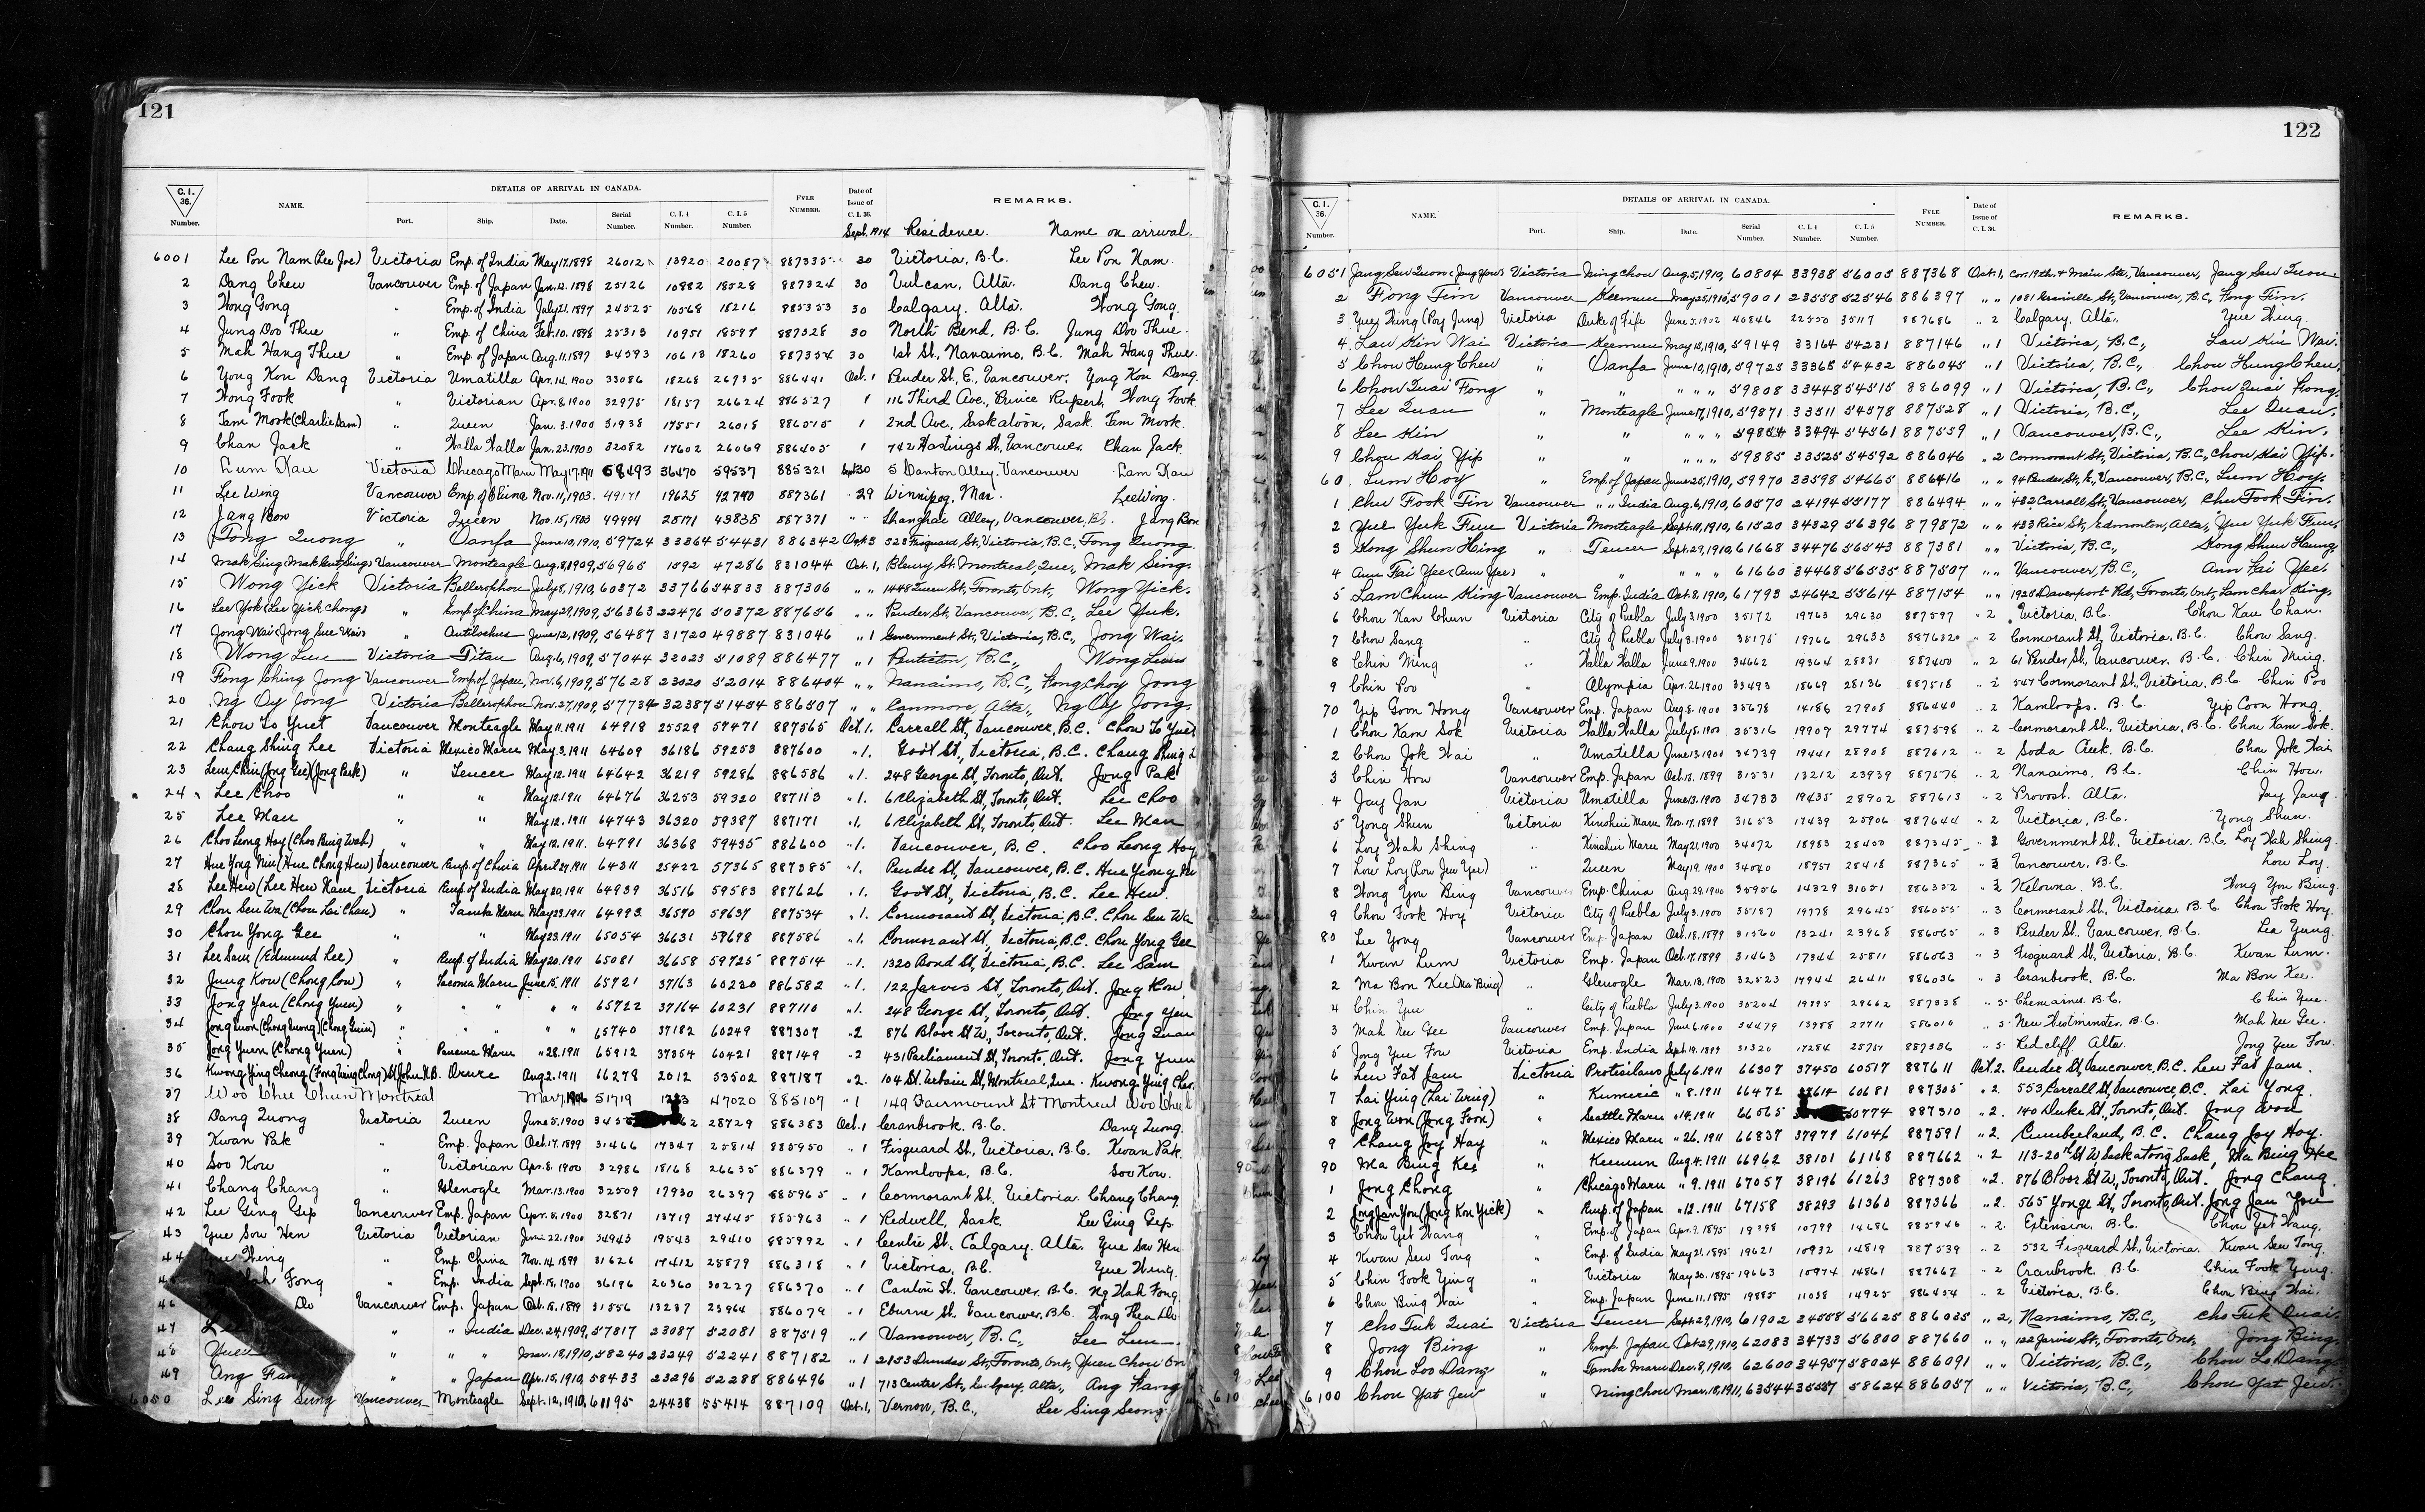 121
C. I. 36. Number. NAME. DETAILS OF ARRIVAL IN CANADA. Port. Ship. Date. Serial Number. C. I. 4 Number. C. I. 5 Number. FYLE NUMBER. Date of Issue of C. I. 36. REMARKS.
Sept. 1914 Residence. Name on arrival.
6001 Lee Pon Nam (Lee Joe) Victoria Emp. of India May 17. 1898 26012 13920 20087 887335 30 Victoria, B.C. Lee Pon Nam.
2 Dang Chew Vancouver Emp. of Japan Jan. 12. 1898 25126 10882 18528 887324 30 Vulcan, Alta. Dang Chew.
3 Wong Gong " Emp. of India July 21. 1897 24525 10568 18216 885353 30 Calgary. Alta. Wong Gong.
4 Jung Doo Thue " Emp. of China Feb. 10. 1898 25313 10951 18597 887328 30 North Bend, B.C. Jung Doo Thue.
5 Mah Hang Thue " Emp. of Japan Aug. 11. 1897 24593 10613 18260 887354 30 1st St., Nanaimo, B.C. Mah Hang Thue.
6 Yong Kou Dang Victoria Umatilla Apr. 14. 1900 33086 18268 26735 886441 Oct. 1 Pender St. E., Vancouver. Yong Kou Dang.
7 Wong Fook " Victorian Apr. 8. 1900 32975 18157 26624 886527 1 116 Third Ave., Prince Rupert, Wong Fook.
8 Tam Mook (Charlie Sam) " Queen Jan. 3. 1900 31938 17551 26018 886515 1 2nd Ave., Saskatoon, Sask. Tam Mook.
9 Chan Jack " Walla Walla Jan. 23. 1900 32082 17602 26069 886405 1 742 Hastings St, Vancouver. Chan Jack.
10 Lum Kau Victoria Chicago Maru May 17. 1911 68493 36470 59537 885321 Sept 30 5 Danton Alley. Vancouver Lam Kau
11 Lee Wing Vancouver Emp. of China Nov. 11, 1903. 49171 19625 42740 887361 29 Winnipeg, Man. Lee Wing.
12 Jang Bow Victoria Queen Nov. 15, 1903 49494 28171 43838 887371 " Shanghai Alley, Vancouver, B.C. Jang Bon
13 Tong Quong " Oanfa June 10, 1910, 59724 33364 54431 886342 Oct. 3 523 Fisguard St., Victoria, B.C., Tong Quong.
14 Mak Sing (Mak Gut Sing) Vancouver Monteagle Aug. 8, 1909, 56965 1592 47286 831044 Oct. 1, Bleury St. Montreal, Que., Mak Sing.
15 Wong Yick Victoria Bellerophon July 8, 1910, 60372 33766 54833 887306 " " 1448 Queen St., Toronto, Ont., Wong Yick.
16 Lee Yok (Lee Yick Chong) " Emp. of China May 29, 1909, 56363 22476 50372 887656 " " Pender St., Vancouver, B.C., Lee Yuk.
17 Jong Wai (Jong Sue Wai) " Antilochus June 12, 1909, 56487 31720 49887 831046 " 1 Government St., Victoria, B.C., Jong Wai.
18 Wong Lun Victoria Titan Aug. 6, 1909, 57044 32023 51089 886477 " 1 Penticton, B.C., Wong Lun
19 Fong Ching Jong Vancouver Emp. of Japan, Nov. 6, 1909, 57628 23020 52014 886404 " " Nanaimo, B.C., Fong Choy Jong
20 Ng Oy Jong Victoria Bellerophon Nov. 27, 1909, 57734 32387 51454 886507 " " Canmore, Alta., Ng Oy Jong.
21 Chow To Yuet Vancouver Monteagle May 11. 1911 64918 25529 57471 887565 Oct. 1. Carrall St, Vancouver, B.C. Chow To Yuet
22 Chang Shing Lee Victoria Mexico Maru May. 3. 1911 64609 36186 59253 887600 " 1. Govt St, Victoria, B.C. Chang Shing L
23 Lem Chin (Jong Gee) (Jong Park) " Teucer May 12. 1911 64642 36219 59286 886586 " 1. 248 George St, Toronto, Ont. Jong Pak
24 Lee Choo " " May 12. 1911 64676 36253 59320 887113 " 1. 6 Elizabeth St, Toronto, Ont. Lee Choo
25 Lee Man " " May 12. 1911 64743 36320 59387 887171 " 1. 6 Elizabeth St, Toronto, Ont. Lee Man
26 Choo Leong Hoy (Choo Bing Wah) " " May 12. 1911. 64791 36368 59435 886600 " 1. Vancouver, B.C. Choo Leong Hoy
27 Hue Yong Nin (Hue Chong Hew) Vancouver Emp. of China April 27. 1911 64311 25422 57365 887385 " 1. Pender St, Vancouver, B.C. Hue Yeong Nin
28 Lee Hew (Lee Hew Kane Victoria Emp. of India May 20. 1911 64939 36516 59583 887626 " 1. Govt St, Victoria, B.C. Lee Hew.
29 Chou Sen Wa (Chou Lai Chan) " Tamba Maru May 23. 1911 64993 36570 59637 887534 " 1. Cormorant St, Victoria, B.C. Chou Sen Wa
30 Chou Yong Gee " " May 23. 1911 65054 36631 59698 887586 " 1. Cormorant St, Victoria, B.C. Chou Yong Gee
31 Lee Sam (Edmund Lee) " Emp. of India May 20. 1911 65081 36658 59725 887514 " 1. 1320 Broad St, Victoria, B.C. Lee Sam
32 Jung Kow (Chong Cow) " Tacoma Maru June 15. 1911 65721 37163 60220 886582 " 1. 122 Jarvis St., Toronto, Ont. Jong Kow
33 Jong Yau (Chong Yuen) " " " " 65722 37164 60231 887110 " 1. 248 George St, Toronto, Ont. Jong Yuu
34 Jong Quon (Chong Quong) (Chong Guin) " " " " 65740 37182 60249 887307 " 2 876 Bloor St W., Toronto, Ont. Jong Quan
35 Jong Yuen (Chong Yuen) " Panama Maru " 28. 1911 65912 37354 60421 887149 " 2 431 Parliament St, Toronto, Ont. Jong Yuen
36 Kwong Ying Cheong (Fong Wing Chong) St John N.B. Oruro Aug. 2. 1911 66278 2012 53502 887187 " 2. 104 St. Urbain St, Montreal, Que. Kwong Ying Cheo.
37 Woo Chue Chun Montreal Mar. 7. 51719 47020 885107 " 1 149 Fairmount St Montreal Woo Chu
38 Dang Quong Victoria Queen June 5. 1900 28729 886383 Oct. 1 Cranbrook. B.C. Dang Quong.
39 Kwan Pak " Emp. Japan Oct. 17. 1899 31466 17347 25814 885950 " 1 Fisguard St., Victoria, B.C. Kwan Pak.
40 Soo Kow " Victorian Apr. 8. 1900 32986 18168 26635 886379 " 1 Kamloops, B.C. Soo Kow.
41 Chang Chang " Glenogle Mar. 13. 1900 32509 17930 26397 885965 " 1 Cormorant St., Victoria. Chang Chang.
42 Lee Ging Gep Vancouver Emp. Japan Apr. 5. 1900 32871 13719 27445 885963 " 1 Redwell, Sask. Lee Ging Gep.
43 Yue Sow Hen Victoria Victorian June 22. 1900 34943 19543 29410 885992 " 1 Centre St., Calgary. Alta. Yue Sow Hen.
44 Yue Wing " Emp. China Nov. 14. 1899 31626 17412 25879 886318 " 1 Victoria, B.C. Yue Wing.
Fong " Emp. India Sept. 18, 1900 36196 20360 30227 886370 " 1 Canton St., Vancouver. B.C. Ng Wah Fong.
46 Do Vancouver Emp. Japan Oct. 18. 1899 31556 13237 23964 886079 " 1 Eburne St. Vancouver, B.C. Wong Thea Do.
47 L " " India Dec. 24, 1909, 57817 23087 52081 887519 " 1 Vancouver, B.C., Lee Lun.
48 Yuen " " " Mar. 18, 1910, 58240 23249 52241 887182 " 1 2153 Dundas St., Toronto, Ont., Yuen Chow On
49 Ang Fang " " Japan Apr. 15, 1910, 58433 23296 52288 886496 " 1 713 Centre St., Calgary, Alta., Ang Fang
6050 Lee Sing Sung Vancouver Monteagle Sept. 12, 1910, 61195 24438 55414 887109 Oct. 1, Vernon, B.C., Lee Sing Seong.
122
C. I. 36. Number. NAME. DETAILS OF ARRIVAL IN CANADA. Port. Ship. Date. Serial Number. C. I. 4 Number. C. I. 5 Number. FYLE NUMBER. Date of Issue of C. I. 36. REMARKS.
6051 Jang Sew Quon (Jang Yow) Victoria Ning Chow Aug. 5, 1910, 60804 33938 56005 887368 Oct. 1, Cor. 19th. & Main Sts., Vancouver, Jang Sew Quon
2 Fong Tim Vancouver Keemun May 25, 1910, 59001 23558 52546 886397 " " 1081 Granville St., Vancouver, B.C., Fong Tim.
3 Yue Wing (Poy Jung) Victoria Duke of Fife June 5. 1902 40846 22550 35117 887686 " 2 Calgary. Alta. Yue Wing.
4 Lau Kin Wai Victoria Keemun May 15, 1910, 59149 33164 54231 887146 " 1 Victoria, B.C., Lau Kin Wai.
5 Chou Heung Cheu " Oanfa June 10, 1910, 59725 33365 54432 886045 " 1 Victoria, B.C., Chou Hung Cheu.
6 Chow Quai Fong " " " " " 59808 33448 54515 886099 " 1 Victoria, B.C., Chou Quai Fong.
7 Lee Quan " Monteagle June 17, 1910, 59871 33511 54578 887528 " 1 Victoria, B.C., Lee Quan.
8 Lee Kin " " " " " 59854 33494 54561 887559 " 1 Vancouver, B.C., Lee Kin.
9 Chou Kai Yip " " " " " 59885 33525 54592 886046 " 2 Cormorant St., Victoria, B.C., Chou Kai Yip.
60. Lum Hoy " Emp. of Japan June 25, 1910, 59970 33598 54665 886416 " " 94 Pender St., E., Vancouver, B.C., Lum Hoy.
1 Chu Fook Tin Vancouver " " India Aug. 6, 1910, 60570 24194 55177 886494 " " 432 Carrall St., Vancouver, Chu Fook Tin.
2 Yue Yuk Fun Victoria Monteagle Sept. 11, 1910, 61520 34329 56396 879872 " " 433 Rice St., Edmonton, Alta., Yue Yuk Fun.
3 Kong Shun Hing " Teucer Sept. 29, 1910, 61668 34476 56543 887381 " " Victoria, B.C., Kong Shun Heung.
4 Ann Fai Yee (Ann Yee) " " " " " 61660 34468 56535 887507 " " Vancouver, B.C., Ann Fai Yee.
5 Lam Chun King Vancouver Emp. India Oct. 8, 1910, 61793 24642 55614 887154 " " 1925 Davenport Rd., Toronto, Ont., Lam Char King.
6 Chou Kan Chun Victoria City of Puebla July 3. 1900 35172 19763 29630 887597 " 2 Victoria, B.C. Chou Kau Chan.
7 Chou Sang " City of Puebla July 3. 1900 35175 19766 29633 8876320 " 2 Cormorant St, Victoria. B.C. Chou Sang.
8 Chin Ming " Walla Walla June 9. 1900 34662 19364 28831 887400 " 2 61 Pender St., Vancouver. B.C. Chin Ming.
9 Chin Poo " Olympia Apr. 26. 1900 33493 18669 28136 887518 " 2 547 Cormorant St., Victoria, B.C. Chin Poo
70 Yip Goon Hong Vancouver Emp. Japan Aug. 8. 1900 35678 14186 27908 886440 " 2 Kamloops. B.C. Yip Coon Hong.
1 Chou Kam Sok Victoria Walla Walla July 8. 1900 35316 19907 29774 887598 " 2 Cormorant St., Victoria, B.C. Chou Kam Sok.
2 Chou Jok Wai " Umatilla June 13. 1900 34739 19441 28908 887612 " 2 Soda Creek. B.C. Chou Jok Wai
3 Chin How Vancouver Emp. Japan Oct. 18. 1899 31531 13212 23939 887576 " 2 Nanaimo. B.C. Chin How.
4 Jay Jan Victoria Umatilla June 13. 1900 34733 19435 28902 887613 " 2 Provost. Alta. Jay Jang.
5 Yong Shun Victoria Kinshiu Maru Nov. 17. 1899 31653 17439 25906 887644 " 2 Victoria, B.C. Yong Shun.
6 Loy Wah Shing " Kinshiu Maru May 21. 1900 34072 18983 28450 887345 " 3 Government St., Victoria. B.C. Loy Wah Shing.
7 Low Loy (Low Jew Yee) " Queen May 19. 1900 34040 18957 28418 887365 " 3 Vancouver. B.C. Low Loy.
8 Wong You Bing Vancouver Emp. China Aug. 29. 1900 35956 14329 31051 886352 " 3 Kelowna. B.C. Wong You Bing.
9 Chou Fook Hoy Victoria City of Puebla July 3. 1900 35187 19778 29645 886055 " 3 Cormorant St., Victoria. B.C. Chou Fook Hoy.
80 Lee Yong Vancouver Emp. Japan Oct. 18, 1899 31560 13241 23968 886065 " 3 Pender St. Vancouver. B.C. Lee Yung.
1 Kwan Lum Victoria Emp. Japan Oct. 17. 1899 31463 17344 25811 886063 " 3 Fisguard St., Victoria. B.C. Kwan Lum.
2 Ma Bon Kee (Ma Bing) " Glenogle Mar. 13. 1900 32523 17944 26411 886036 " 3 Cranbrook. B.C. Ma Bon Kee.
4 Chin Yue " City of Puebla July 3. 1900 35204 19795 29662 887338 " 5 Chemainus. B.C. Chin Yue.
3 Mah Nee Gee Vancouver Emp. Japan June 6. 1900 34479 13988 27711 886010 " 5 New Westminster. B.C. Mah Nee Gee.
5 Jong Yee Fow Victoria Emp. India Sept. 19. 1899 31320 17284 25751 887536 " 5 Redcliff. Alta. Jong Yee Fow.
6 Leu Fat Jam Victoria Protesilaus July 6. 1911 66307 37450 60517 887611 Oct. 2. Pender St, Vancouver, B.C. Leu Fat Jam.
7 Lai Ying (Lai Wing) " Kumeric " 8. 1911 66472 37614 60681 887305 " 2. 553 Carrall St, Vancouver, B.C. Lai Yong.
8 Jong Won (Jong Foon) " Seattle Maru " 14. 1911 66565 60774 887310 " 2. 140 Duke St., Toronto, Ont. Jong Won
9 Chang Joy Hay " Mexico Maru " 26. 1911 66837 37979 61046 887591 " 2. Cumberland, B.C. Chang Joy Hoy.
90 Ma Bing Kee " Keemun Aug. 4. 1911 66962 38101 61168 887662 " 2 113-20th St W, Saskatoon, Sask, Ma Bing Kee
1 Jong Chong " Chicago Maru " 9. 1911 67057 38196 61263 887308 " 2. 876 Bloor St W, Toronto, Ont. Jong Chang.
2 Jong Jan You (Jong Kou Yick) " Emp. of Japan " 12. 1911 67158 38293 61360 887366 " 2. 565 Yonge St, Toronto, Ont. Jong Jan You
3 Chou Yet Wang " Emp. of Japan Apr. 9. 1895 19398 10799 14686 885946 " 2 Extension. B.C. Chou Yet Wang.
4 Kwan Sew Tong " Emp. of India May 21. 1895 19621 10932 14819 887539 " 2 532 Fisguard St., Victoria. Kwan Sew Tong.
5 Chin Fook Ying " Victoria May 30. 1895 19663 10974 14861 887667 " 2 Cranbrook. B.C. Chin Fook Ying.
6 Chou Bing Wai " Emp. Japan June 11. 1895 19885 11038 14925 886454 " 2 Victoria. B.C. Chou Bing Wai.
7 Cho Tuk Quai Victoria Teucer Sept. 29, 1910, 61902 34558 56625 886035 " 2, Nanaimo, B.C., Cho Tuk Quai.
8 Jong Bing " Emp. Japan Oct. 29, 1910, 62083 34733 56800 887660 " " 122 Jarvis St., Toronto, Ont., Jong Bing.
9 Chou Loo Dang " Tamba Maru Dec. 8, 1910, 62600 34957 58024 886091 " " Victoria, B.C., Chou Lo Dang.
6100 Chou Yat Jew " Ning Chow Mar. 18, 1911, 63544 35557 58624 886057 " " Victoria, B.C., Chou Yat Jew.